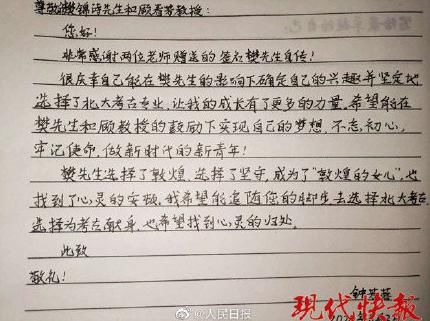 尊敬的樊锦诗先生和顾春芳教授：
您好！
非常感谢两位老师赠送的签名樊先生自传！
很庆幸自己能在樊先生的影响下确定自己的兴趣并坚定地
选择了北大考古专业，让我的成长有了更多的力量。希望能在
樊先生和顾教授的鼓励下实现自己的梦想，不忘初心，
牢记使命，做新时代的新青年！
樊先生选择了敦煌，选择了坚守，成为了“敦煌的女儿”，也
找到了心灵的安放。我希望能追随您的脚步去选择北大考古，
选择为考古献身，也希望找到心灵的归处。
此致
敬礼！
钟芳蓉
现代快报
@人民日报